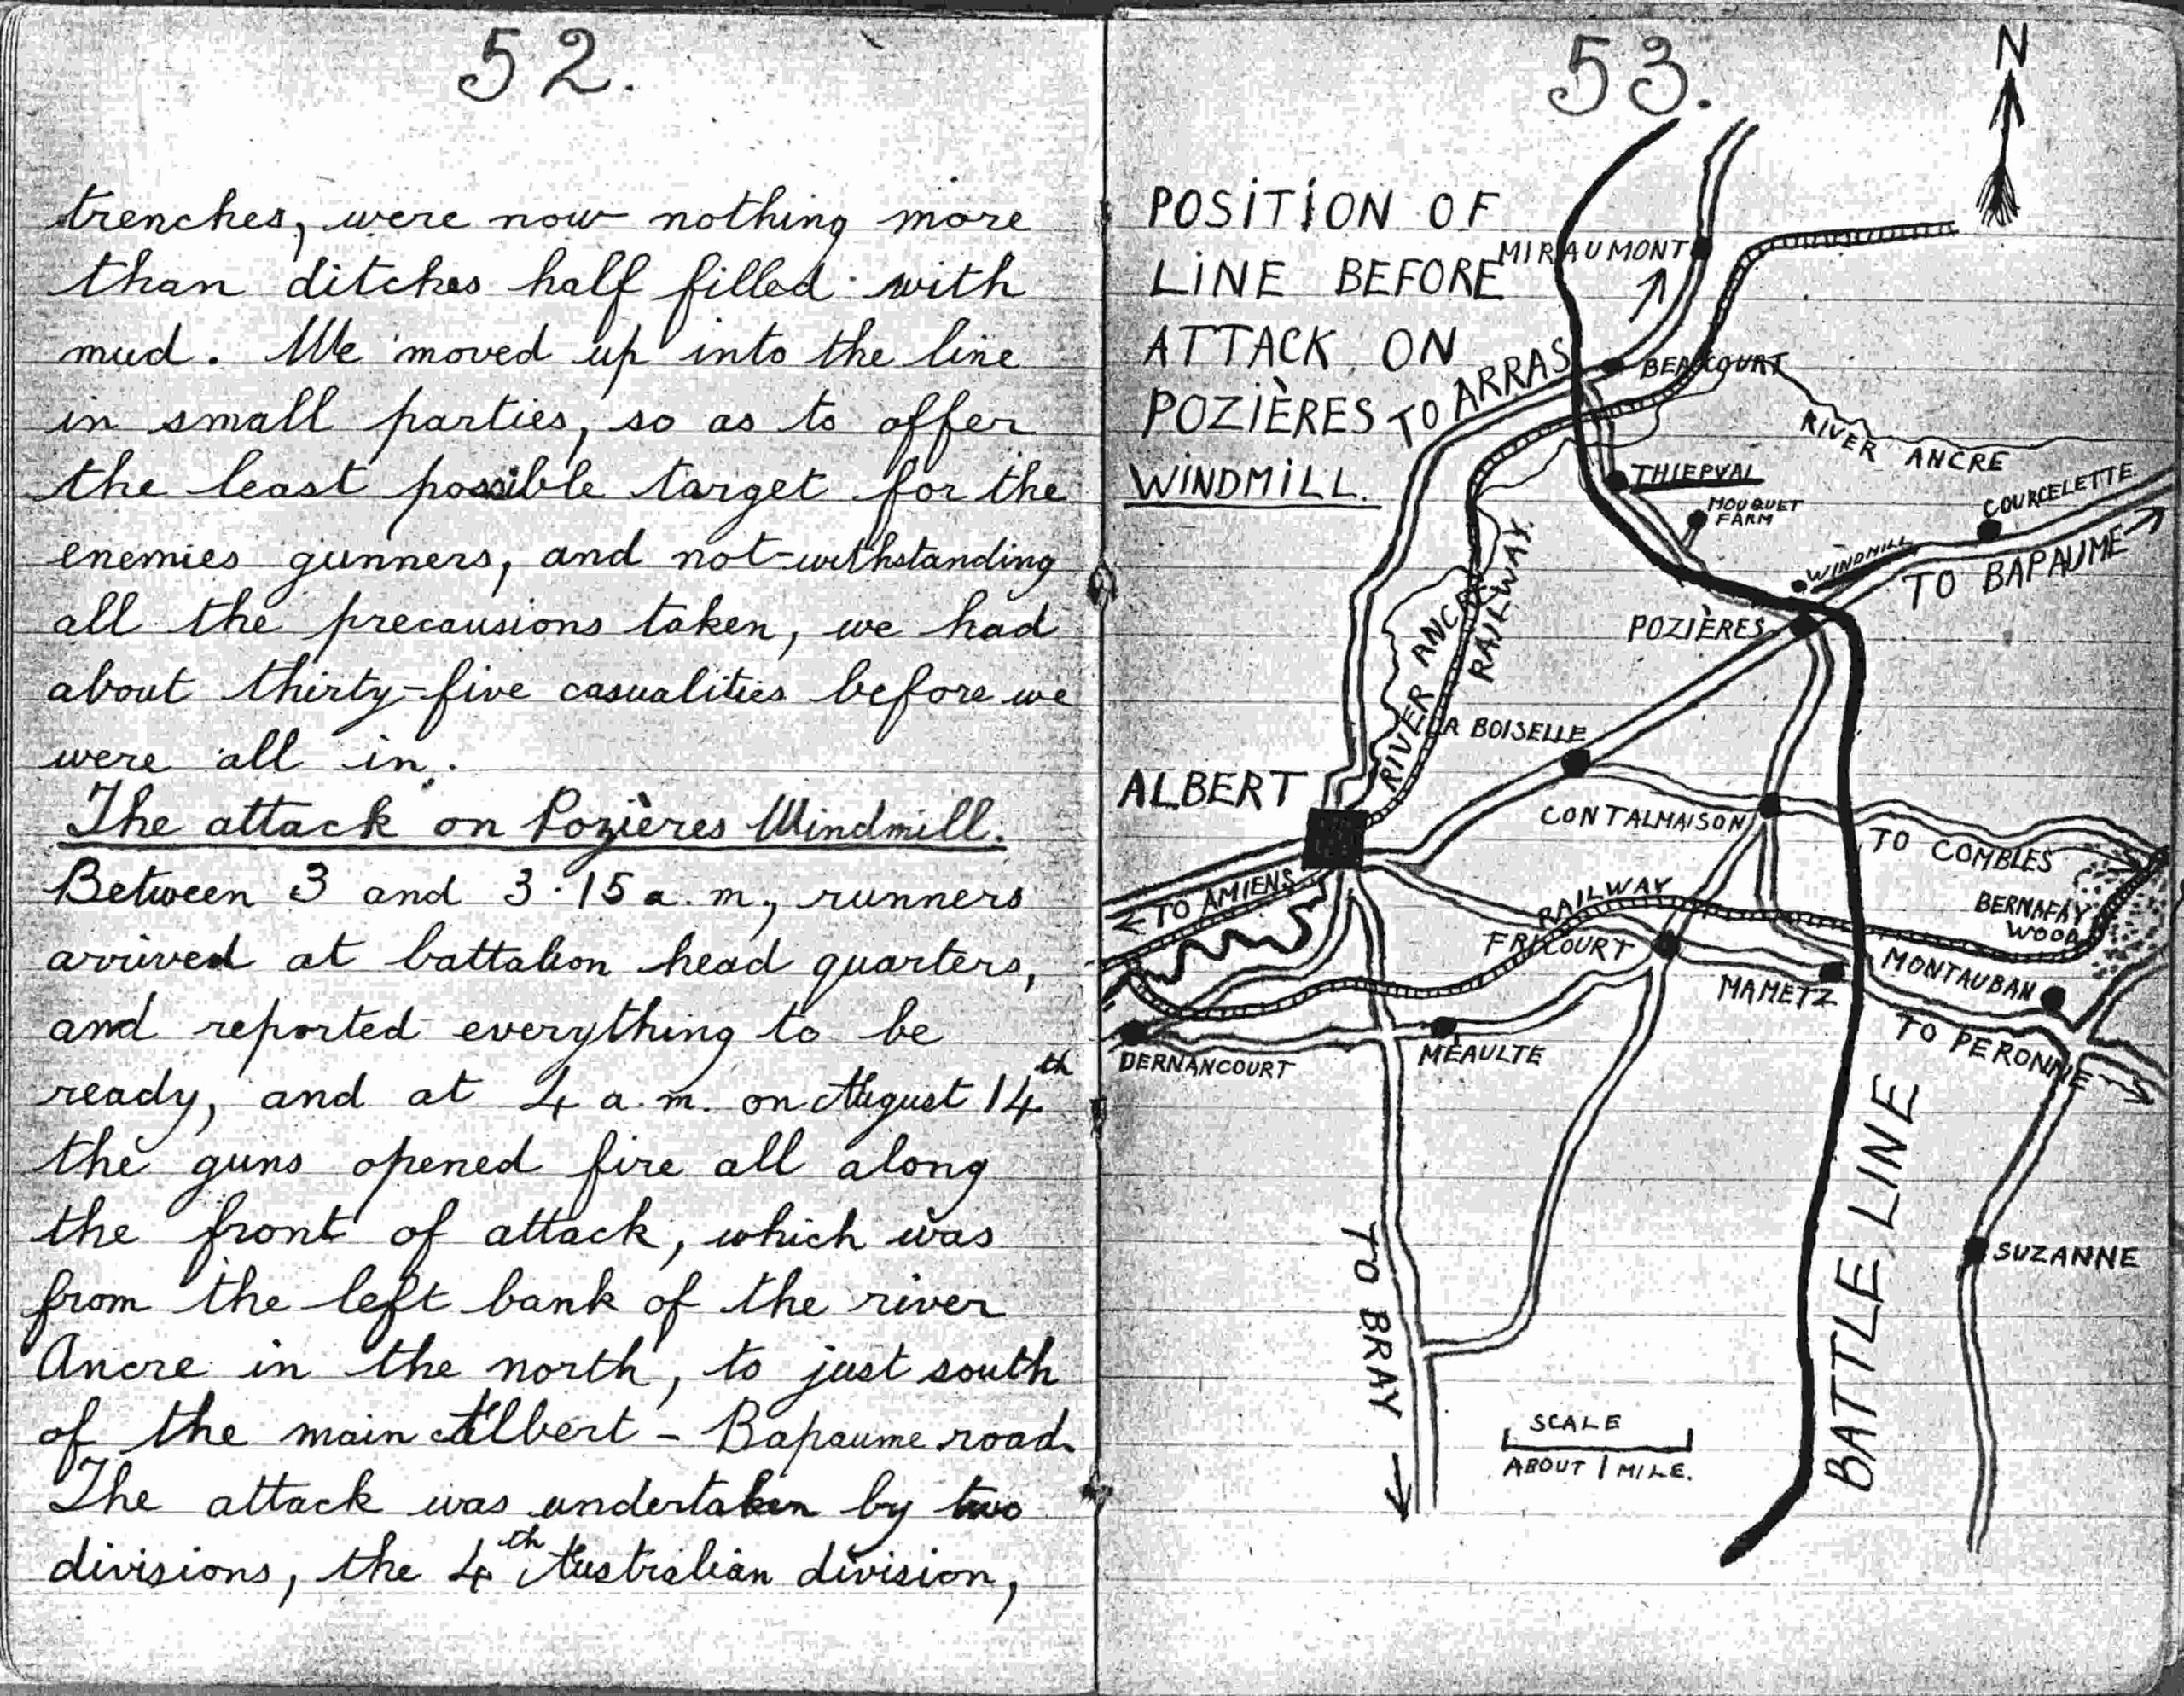 52.
trenches, were now nothing more
than ditches half filled with
mud. We moved up into the line
in small parties, so as to offer
the least possible target for the
enemies gunners, and not-withstanding
all the precausions taken, we had
about thirty-five casualities before we
were all in.
The attack on Pozières Windmill.
Between 3 and 3·15 a.m., runners
arrived at battalion head quarters,
and reported everything to be
ready, and at 4 a.m. on August 14th
the guns opened fire all along
the front of attack, which was
from the left bank of the river
Ancre in the north, to just south
of the main Albert - Bapaume road.
The attack was undertaken by two
divisions, the 4th Australian division,
53.
N
POSITION OF
LINE BEFORE
ATTACK ON
POZIÈRES
WINDMILL.
MIRAUMONT
TO ARRAS
BEAUCOURT
RIVER ANCRE
THIEPVAL
MOUQUET
FARM
COURCELETTE
WINDMILL
TO BAPAUME
POZIÈRES
RIVER ANCRE
RAILWAY.
LA BOISELLE
ALBERT
CONTALMAISON
TO COMBLES
TO AMIENS
RAILWAY
BERNAFAY
WOOD
FRICOURT
MONTAUBAN
MAMETZ
TO PERONNE
DERNANCOURT
MÉAULTE
BATTLE LINE
SUZANNE
TO BRAY
SCALE
ABOUT 1 MILE.